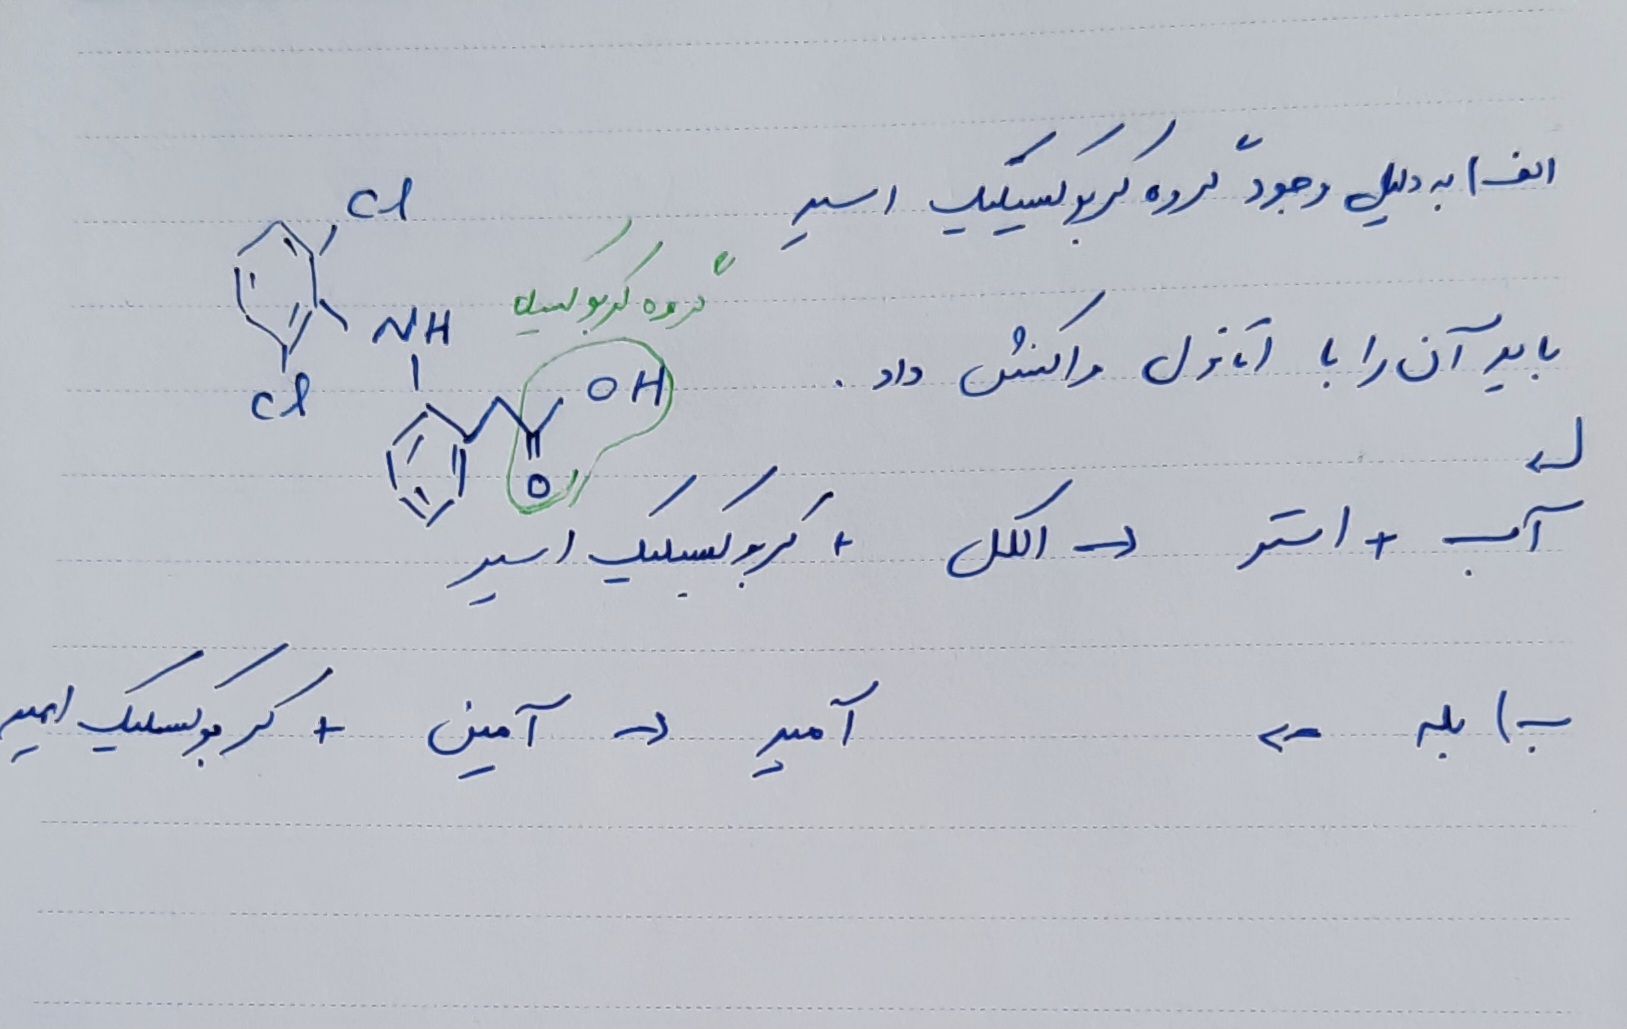 الف) به دلیل وجود گروه کربوکسیلیک اسید
Cl
گروه کربوکسیل
NH
باید آن را با اتانول واکنش داد.
OH
Cl
O
کربوکسیلیک اسید + الکل → استر + آب
ب) بله ← کربوکسیلیک اسید + آمین → آمید